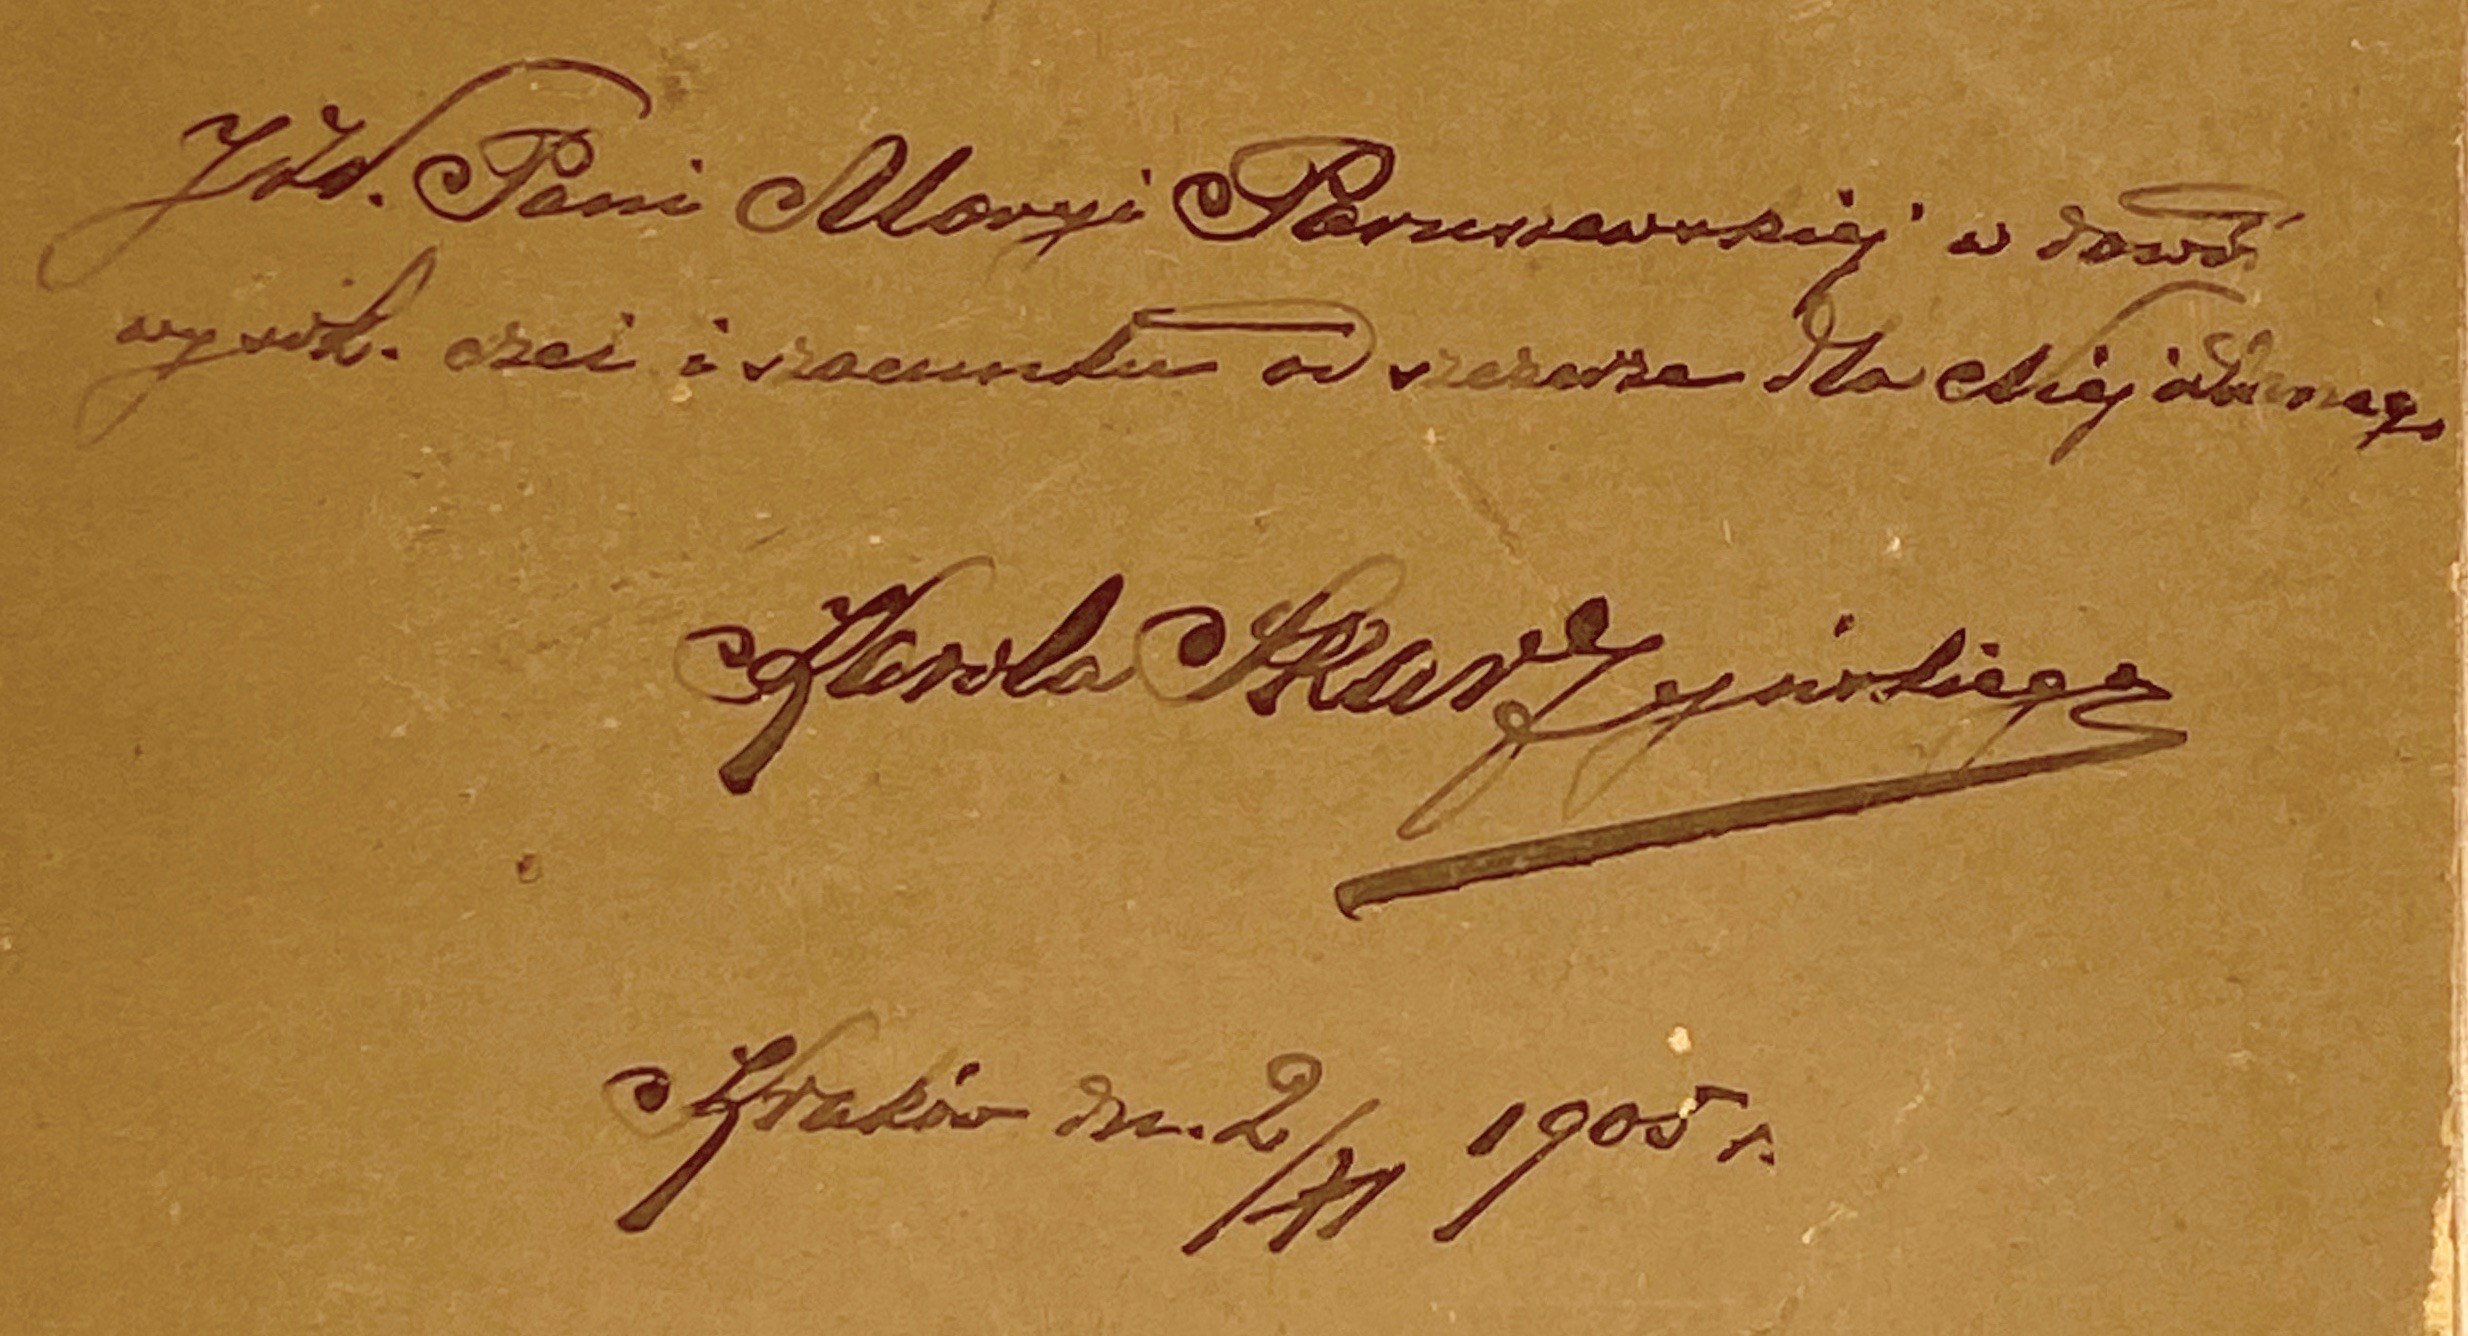 JWP. Pani Maryi Paruszewskiej w dowód
wysok. czci i szacunku od szczerze dla Niej oddanego
Karola Skarżyńskiego
Kraków dn. 2/XI 1905 r.